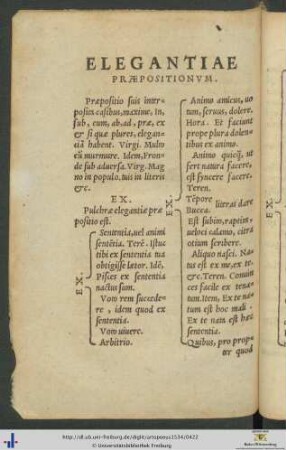 ELEGANTIAE
PRÆPOSITIONVM.
Præpositio suis inter-
positis casibus, maxime, In,
sub, cum, ab, ad, præ, ex
et si quæ plures, elegan-
tiã habent. Virgi. Mul-
cũ murmure. Idem, Fron-
de sub aduersa. Virg. Mag
no in populo. tuis in literis
etc.
EX.
Pulchræ elegantiæ præ
positio est.
EX.
Sententia, uel animi
sentẽtia. Terẽ. Istuc
tibi ex sententia
obtigisse lætor. Idẽ,
Pisces ex sententia
nactus sum.
Vom rem succede-
re, idem quod ex
sententia.
Vom uiuere.
Arbitrio.
EX.
Animo amicus, uo
tum, seruus, dolere.
Hora. Et faciunt
prope plura dolen-
tibus ex animo.
Animo quicq̃, ut
fert natura facere:
est syncere facere.
Teren.
Tẽpore
Buccea.
literas dare
Est subitm, raptim,
ueloci calamo, citra
otium scribere.
Aliquo nasci. Na-
tus est ex me, ex te.
etc. Teren. Comin
ces facile ex te na-
tum. Item, Ex te na-
tum est hoc mali.
Ex te nam est hæc
sententia.
Quibus, pro prop-
ter quod
http://dl.ub.uni-freiburg.de/diglit/artopoeus1534/0422
© Universitätsbibliothek Freiburg